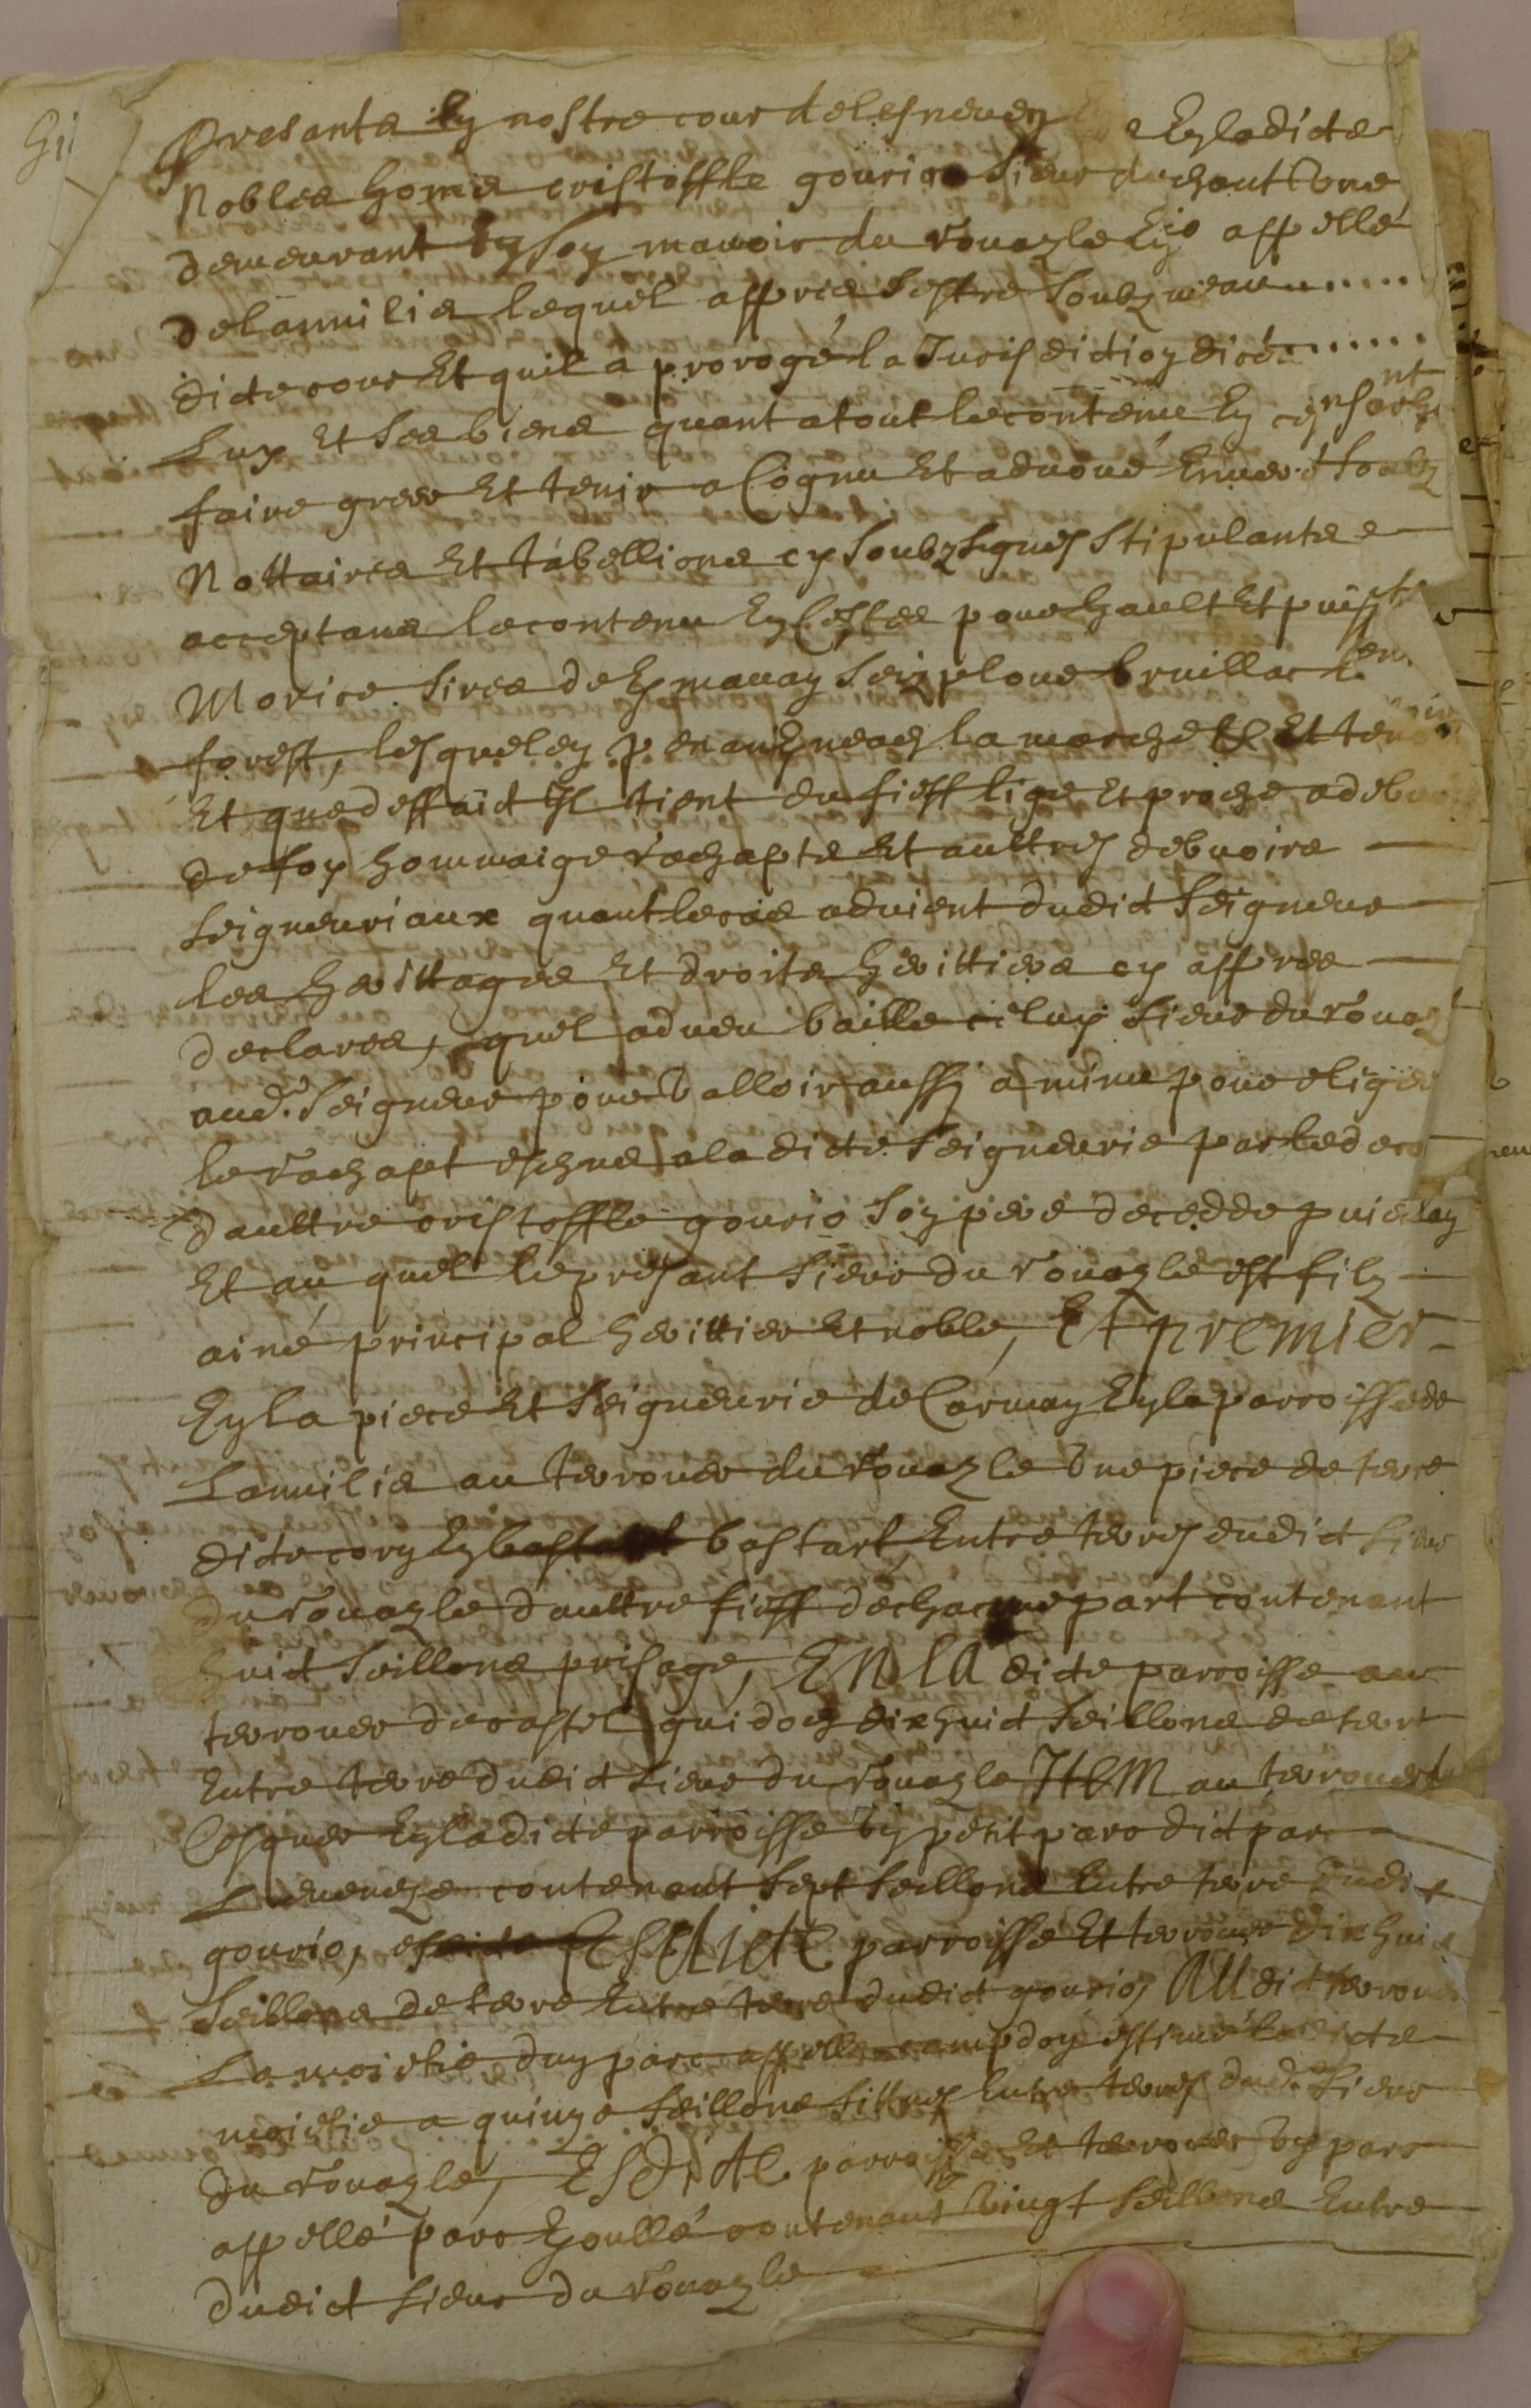 Presante en nostre cour de lesneven Enladicte
Nobles home cristoffle gourio Sieur du
demeurant En Son manoir du rouazle appellé
de lannilis lequel appres Sestre Soubzmeau......
dicte cour Et quil a prorogé la Jurisdiction dice.......
Luy Et Ses biens quant a tout le contenu En
faire greer Et tenir a Cognu Et advoué Soubz
Nottaires Et tabellions cy Soubzsignes Stipulantes
acceptans le contenu En Cestes pour hault Et puiss
Morice Sires de Kmauan Sein ploue bruillac
forest, lesquelen penanKneach la marche Et
Et que deffaict Il tient du fieff lige Et proche a deb
de foy hommaige rachapts Et aultres debvoirs
Seigneuriaux quant le cas advient dudict Seigneur
les herittages Et droits herittiers cy appres
declares, quel adveu baille iceluy Sieur du rouaz
aud. Seigneur pour Valloir aussy a minu pour eliger
le rachapt eschue a la dicte Seigneurie par le dece
daultre cristoffle gourio Son pere decedde puis lan
Et au quel le presant Sieur du rouazle est filz
ainé principal herittier Et noble, Et premier
En la piece Et Seigneurie de Carman En la parroisse de
Lannilis au terrouer du rouazle Une piece de terre
dicte bastart Entre terres dudict Sieur
du rouazle daultre fieff de chacune part contenant
huict Seillons prisage, EN la dicte parroisse au
terrouer de castel guidoch dixhuict Seillons de terre
Entre terre dudict Sieur du rouazle Item au terrouer du
Cosquer En la dicte parroisse Un petit parc dict parc
contenant Sept Seillons Entre terre dudict
gourio, Esdicte parroisse Et terrouer dixhuict
Seillons de terre Entre terre dudict gourio, AU dict terrou
La moictie dun parc appelle estimé la dicte
moictie a quinze Seillons Sittues Entre terres dud. Sieur
du rouazle, ESdicte parroisse Et terrouer Un parc
appellé parc contenant Vingt Seillons Entre
dudict Sieur du rouazle